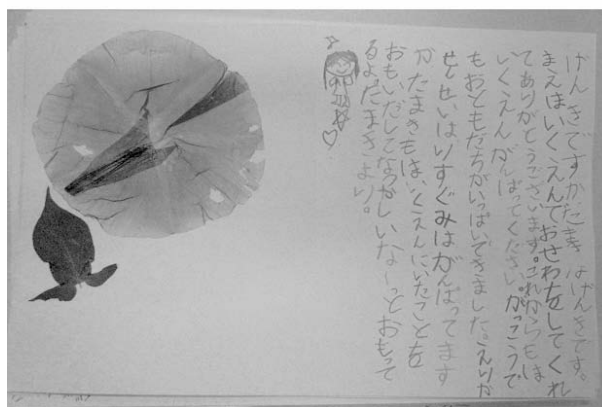 げんきですかたまきはげんきです。
まえほいくえんでおせわをしてくれ
てありがとうございます。これからもほ
いくえんがんばってください。がっこうで
もおともだちがいぱいできました。えりか
せんせいはりすぐみはがんばってます
かたまきもほいくえんにいたことを
おもいだしてなつかしいな〜っとおもって
るよたまきより。